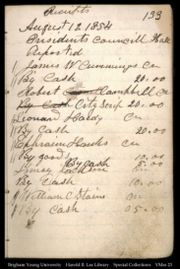 Receipts 133
August 12, 1854
Presidents Councill House
Reported
James W Cummings Cr
By Cash 20.00
Robert Campbell Cr
By Cash City Scrip 20.00
Leonard Hardy Cr
By Cash 20.00
Ephraim Hanks Cr
By goods
By Cash
James Jackson
By Cash 10.00
William C Stains Cr
By Cash 05.00
Brigham Young University Harold B. Lee Library Special Collections VMss 23